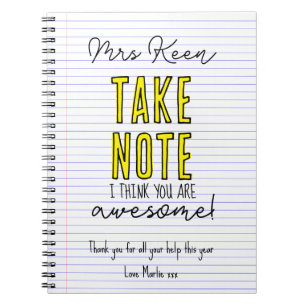 Mrs Keen
TAKE
NOTE
I THINK YOU ARE
awesome!
Thank you for all your help this year
Love Marlie xxx